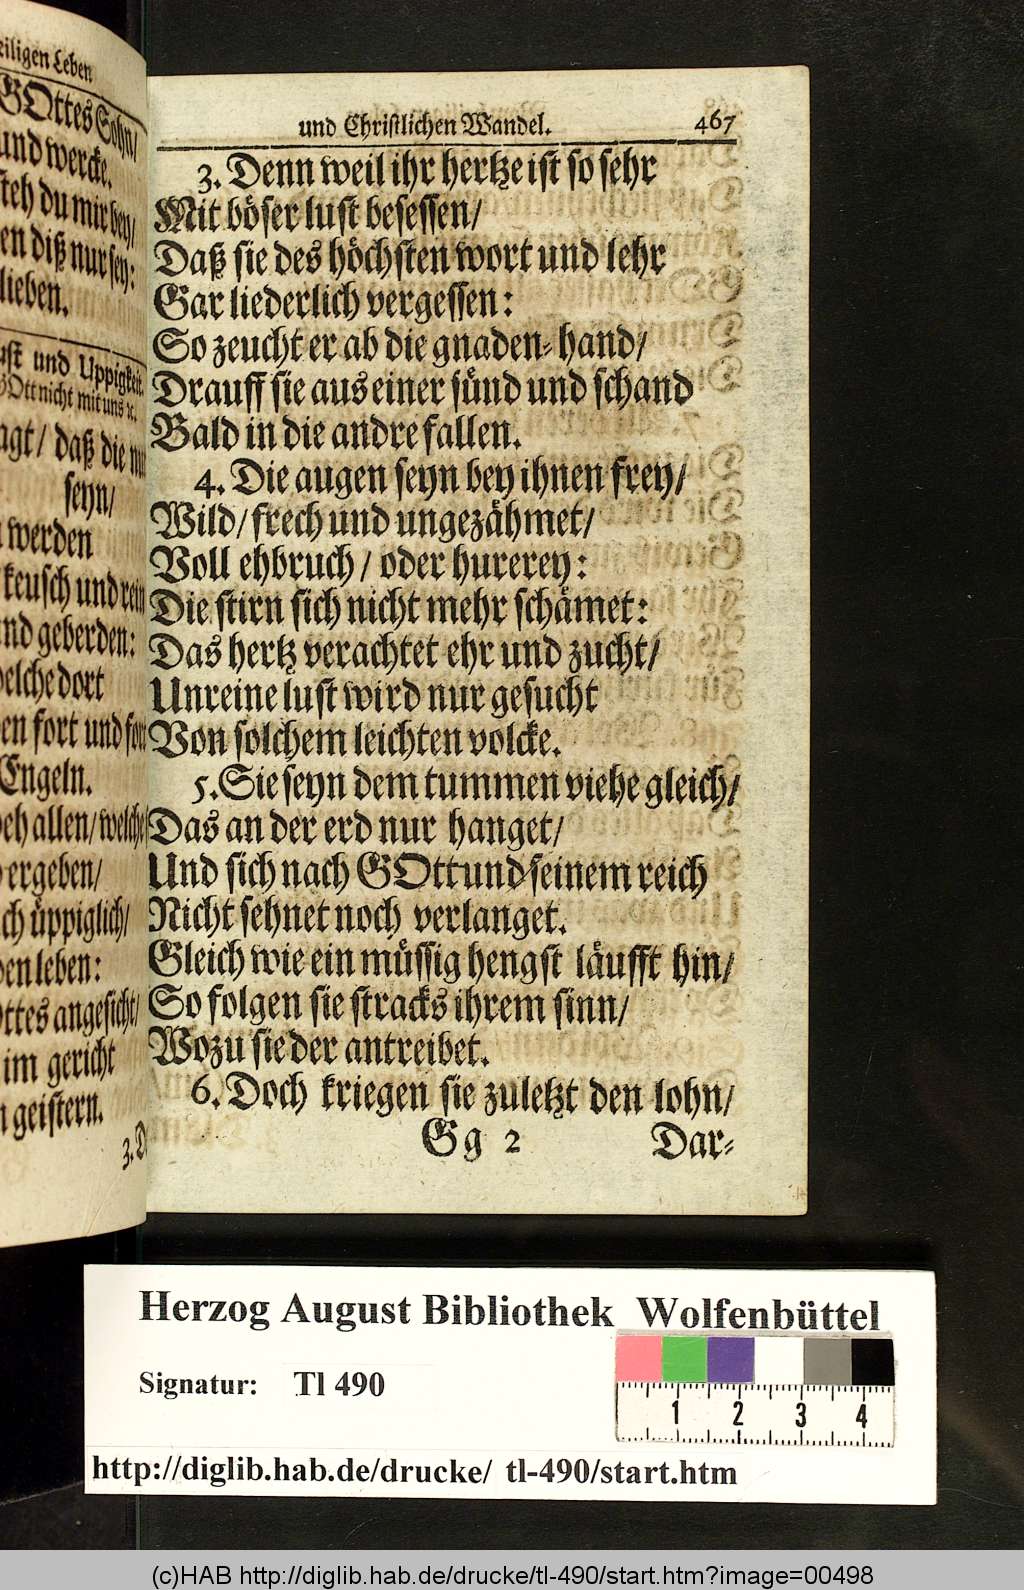 eiligen Leben
GOttes Sohn/
und wercke.
steh du mir bey/
en diß nur sey:
lieben.
ust und Uppigkeit.
GOtt nicht mit uns ꝛc.
agt/ daß die nu
seyn/
werden
keusch und rein
nd geberden:
welche dort
en fort und fort
Engeln.
eh allen/ welche
ergeben/
ch üppiglich/
en leben:
Ottes angesicht/
im gericht
n geistern.
3. D
und Christlichen Wandel. 467
3. Denn weil ihr hertze ist so sehr
Mit böser lust besessen/
Daß sie des höchsten wort und lehr
Gar liederlich vergessen:
So zeucht er ab die gnaden-hand/
Drauff sie aus einer sünd und schand
Bald in die andre fallen.
4. Die augen seyn bey ihnen frey/
Wild/ frech und ungezähmet/
Voll ehbruch/ oder hurerey:
Die stirn sich nicht mehr schämet:
Das hertz verachtet ehr und zucht/
Unreine lust wird nur gesucht
Von solchem leichten volcke.
5. Sie seyn dem tummen viehe gleich/
Das an der erd nur hanget/
Und sich nach GOtt und seinem reich
Nicht sehnet noch verlanget.
Gleich wie ein müssig hengst läufft hin/
So folgen sie stracks ihrem sinn/
Wozu sie der antreibet.
6. Doch kriegen sie zuletzt den lohn/
Gg 2 Dar-
Herzog August Bibliothek Wolfenbüttel
Signatur: Tl 490
1 2 3 4
http://diglib.hab.de/drucke/ tl-490/start.htm
(c)HAB http://diglib.hab.de/drucke/tl-490/start.htm?image=00498